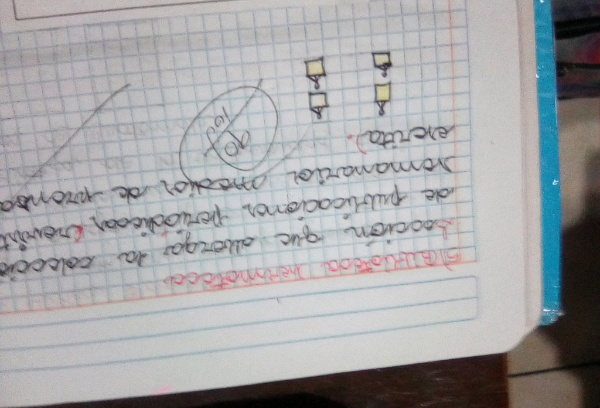 hemeroteca
Sección que alberga la colecció
de publicaciones periódicas (revist
semanarios o medios de prensa
escrita).